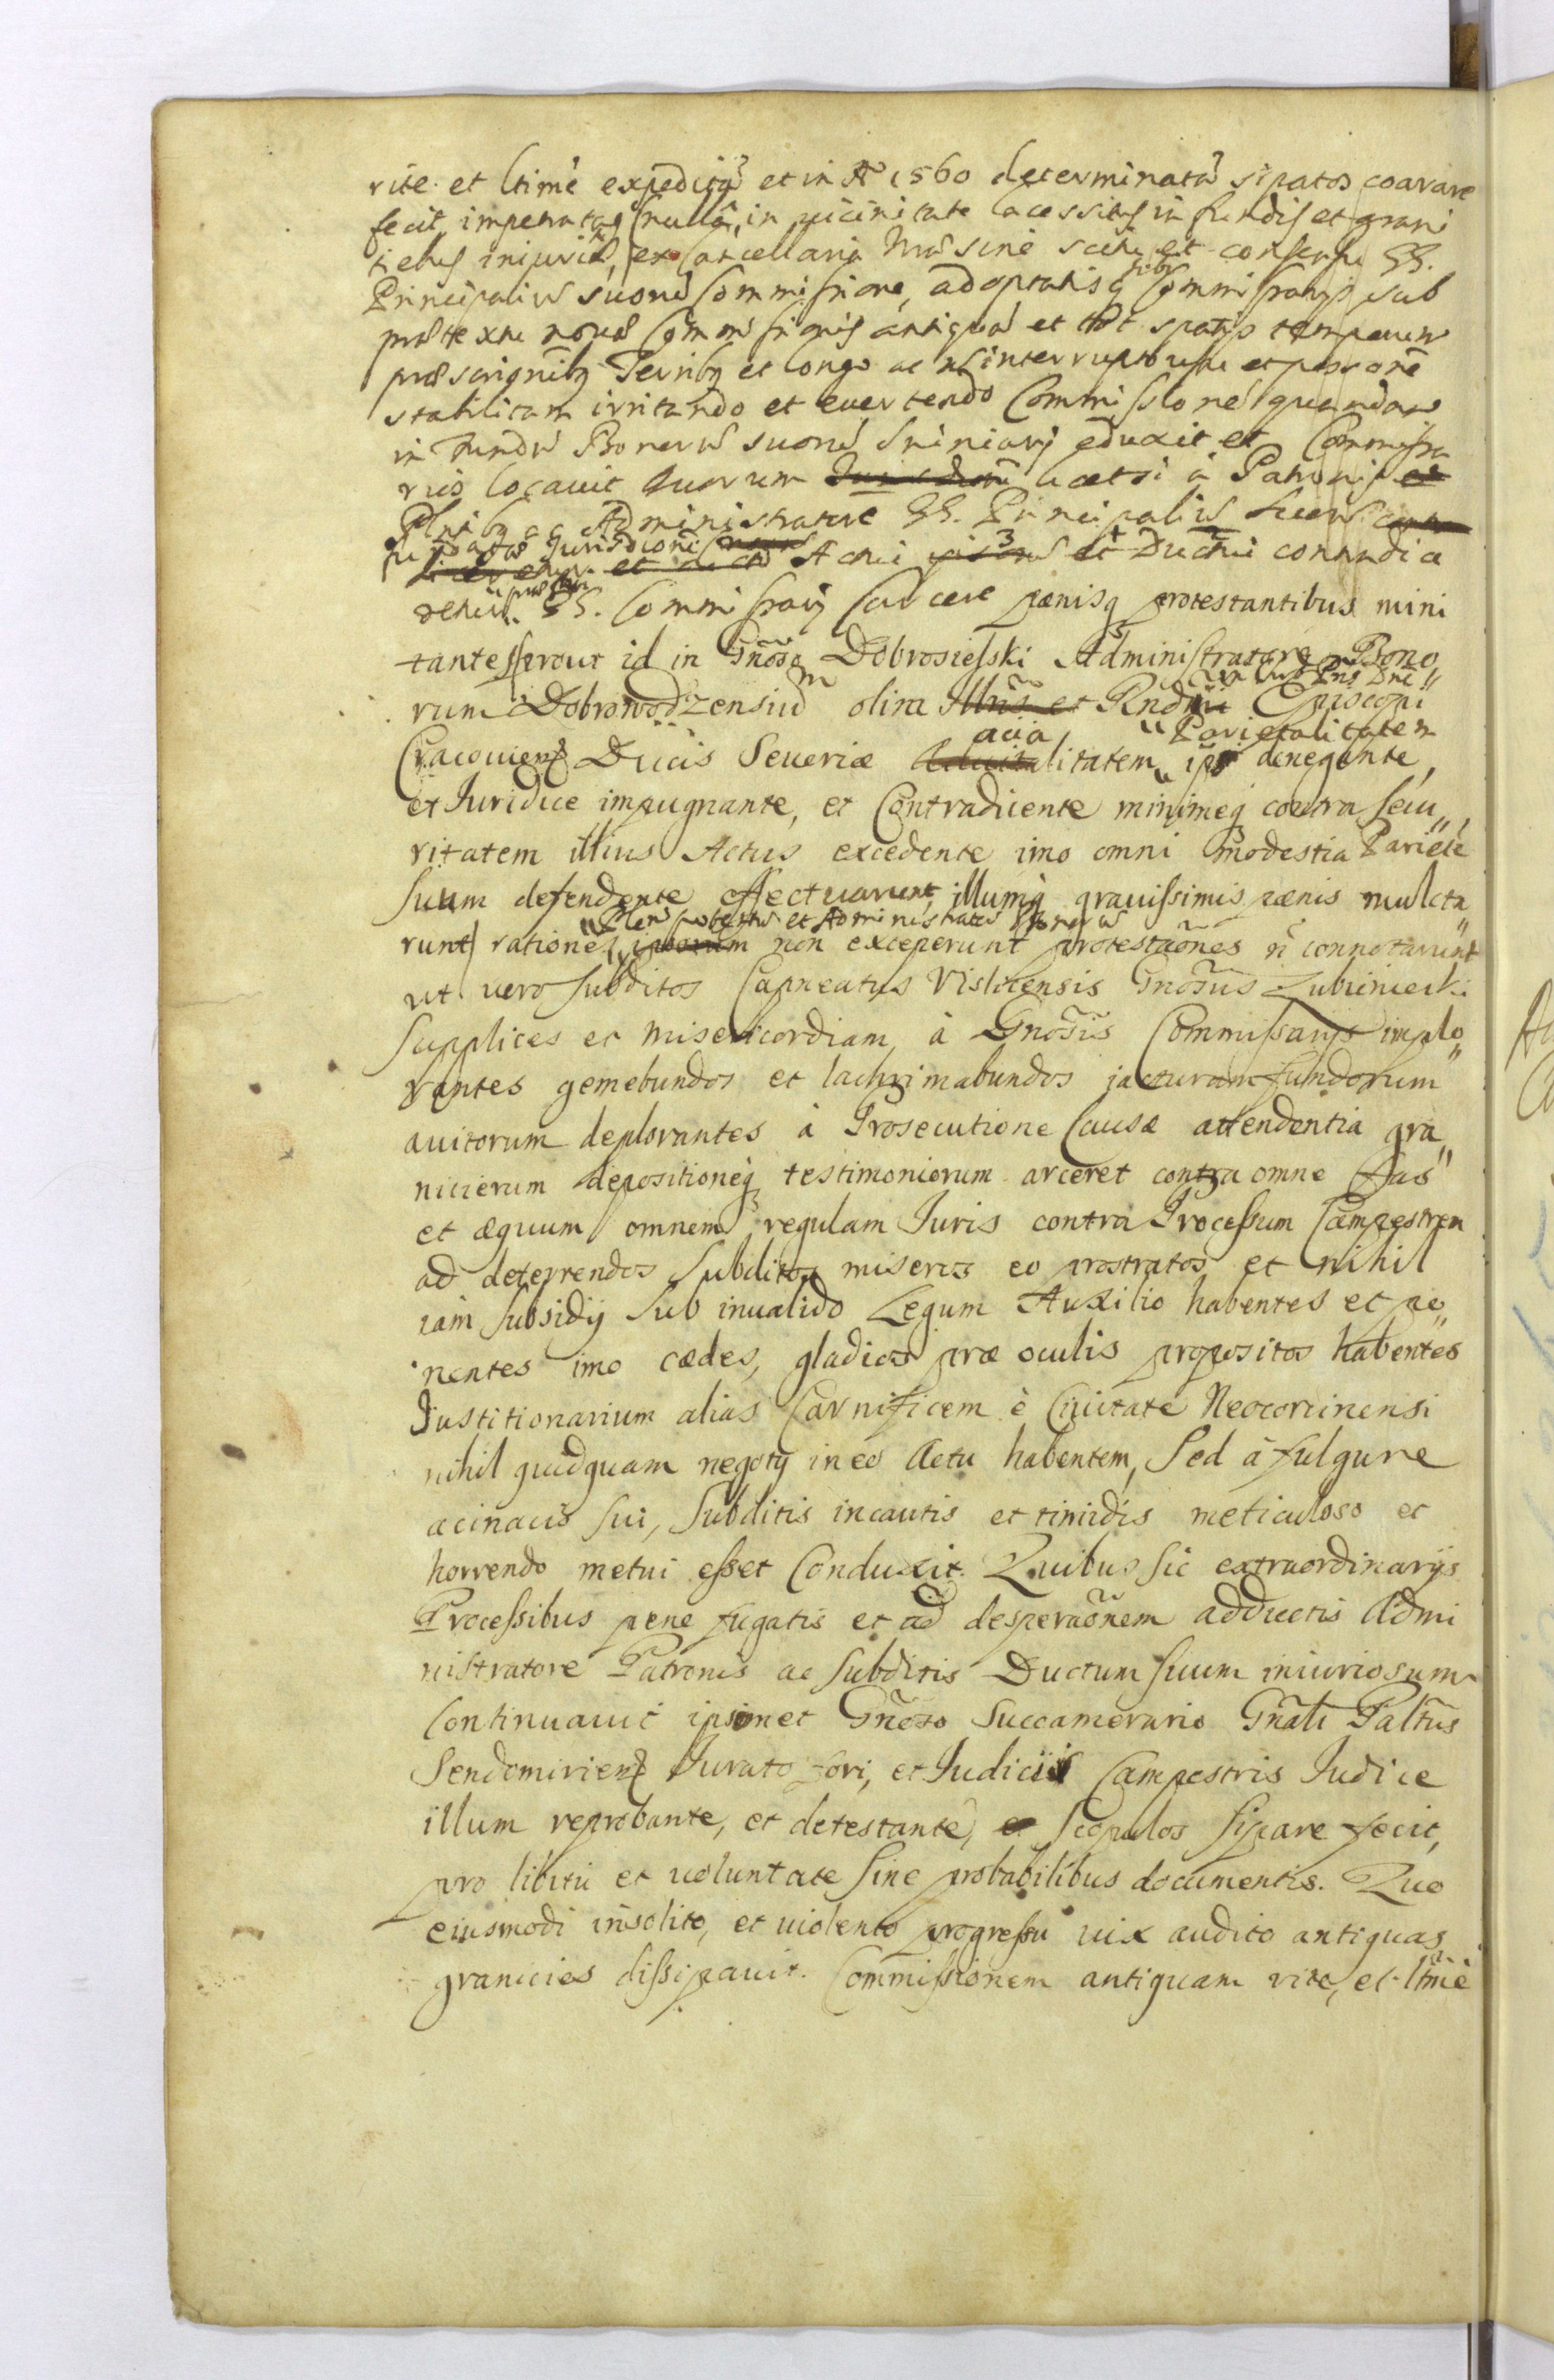 rite et ltime expeditã et in Aõ 1560 determinatã sipatos coarare
fecit, impetratas nullâ, in vicinitate lacessitus in fundis et grani
tiebus iniuriâ, ex Cancellaria sine scitu et consensu SS.
Principaliũ suorũ Commissione, adoptatisq Commissarijs sub
prætextu novæ Commissionis antiquã et tot spatijs temporum
longo ac interrupto usu et
stabilitam irritando et evertendo Commissionẽ quandam
in fundũ Bonorũ suorũ eduxit et Commissa
rios locavit quorum licetsi à Patronis et
Administratore SS. Principaliũ
Jurisdictioni Actui et Ductui contradice
SS. Commissarij Carcere pœnisq protestantibus mini
tantes prout id in Gnõso Dobrosielski Administratore Bono,,
rum Dobrowodzensiũ olim Illris et Rndmi Episcopi
Cracoviens Ducis Severiæ acia litatem,, Parietalitatem ipsi denegante,
et Juridice impugnante, et Contradicente minimeq contra secu,,
ritatem illius Actus excedente imo omni modestia Parietẽ
suum defendente effectuarunt, illumq gravissimis pœnis mulcta,,
runt, rationes ipsorum ,,Plenipotentis et Administratoris Bonorũ non exceperunt protestaõnes ñ connotarunt
ut vero subditos Capneatus Visliciensis Gnõsus Lubiniecki
supplices et misericordiam, à Gnõsis Commissarijs implo,,
rantes gemebundos et lachrimabundos jacturam fundorum
avitorum deplorantes à Prosecutione Causæ attendentia gra,,
nicierum depositioneq testimoniorum arceret contra omne Fas
et æquum omnem regulam Juris contra Processum Campestrem
ad deterrendos Subditos miseros eo prostratos et nihil
iam subsidij sub invalido Legum Auxilio habentes et po,,
nentes imo cædes, gladios præ oculis propositos habentes
Justitionarium alias Carnificem è Civitate Neocorcinensi
nihil quidquam negotij in eo Actu habentem, Sed à fulgure
acinacis sui, Subditis incautis et timidis meticuloso et
horrendo metui esset Conduxit. Quibus sic extraordinarijs
Processibus pene fugatis et ad desperaõnem adductis Admi
nistratore Patronis ac subditis Ductum suum iniuriosum
continuavit ipsomet Gnõso Succamerario Gñali Paltũs
Sendomiriens Jurato fori, et Judicii Campestris Judice
illum reprobante, et detestante, et Scopulos sipare fecit,
pro libitu et voluntate sine probabilibus documentis. Quo
eiusmodi insolito, et violento progressu vix audito antiquas
granicies dissipavit. Commissionem antiquam rite, et ltmè